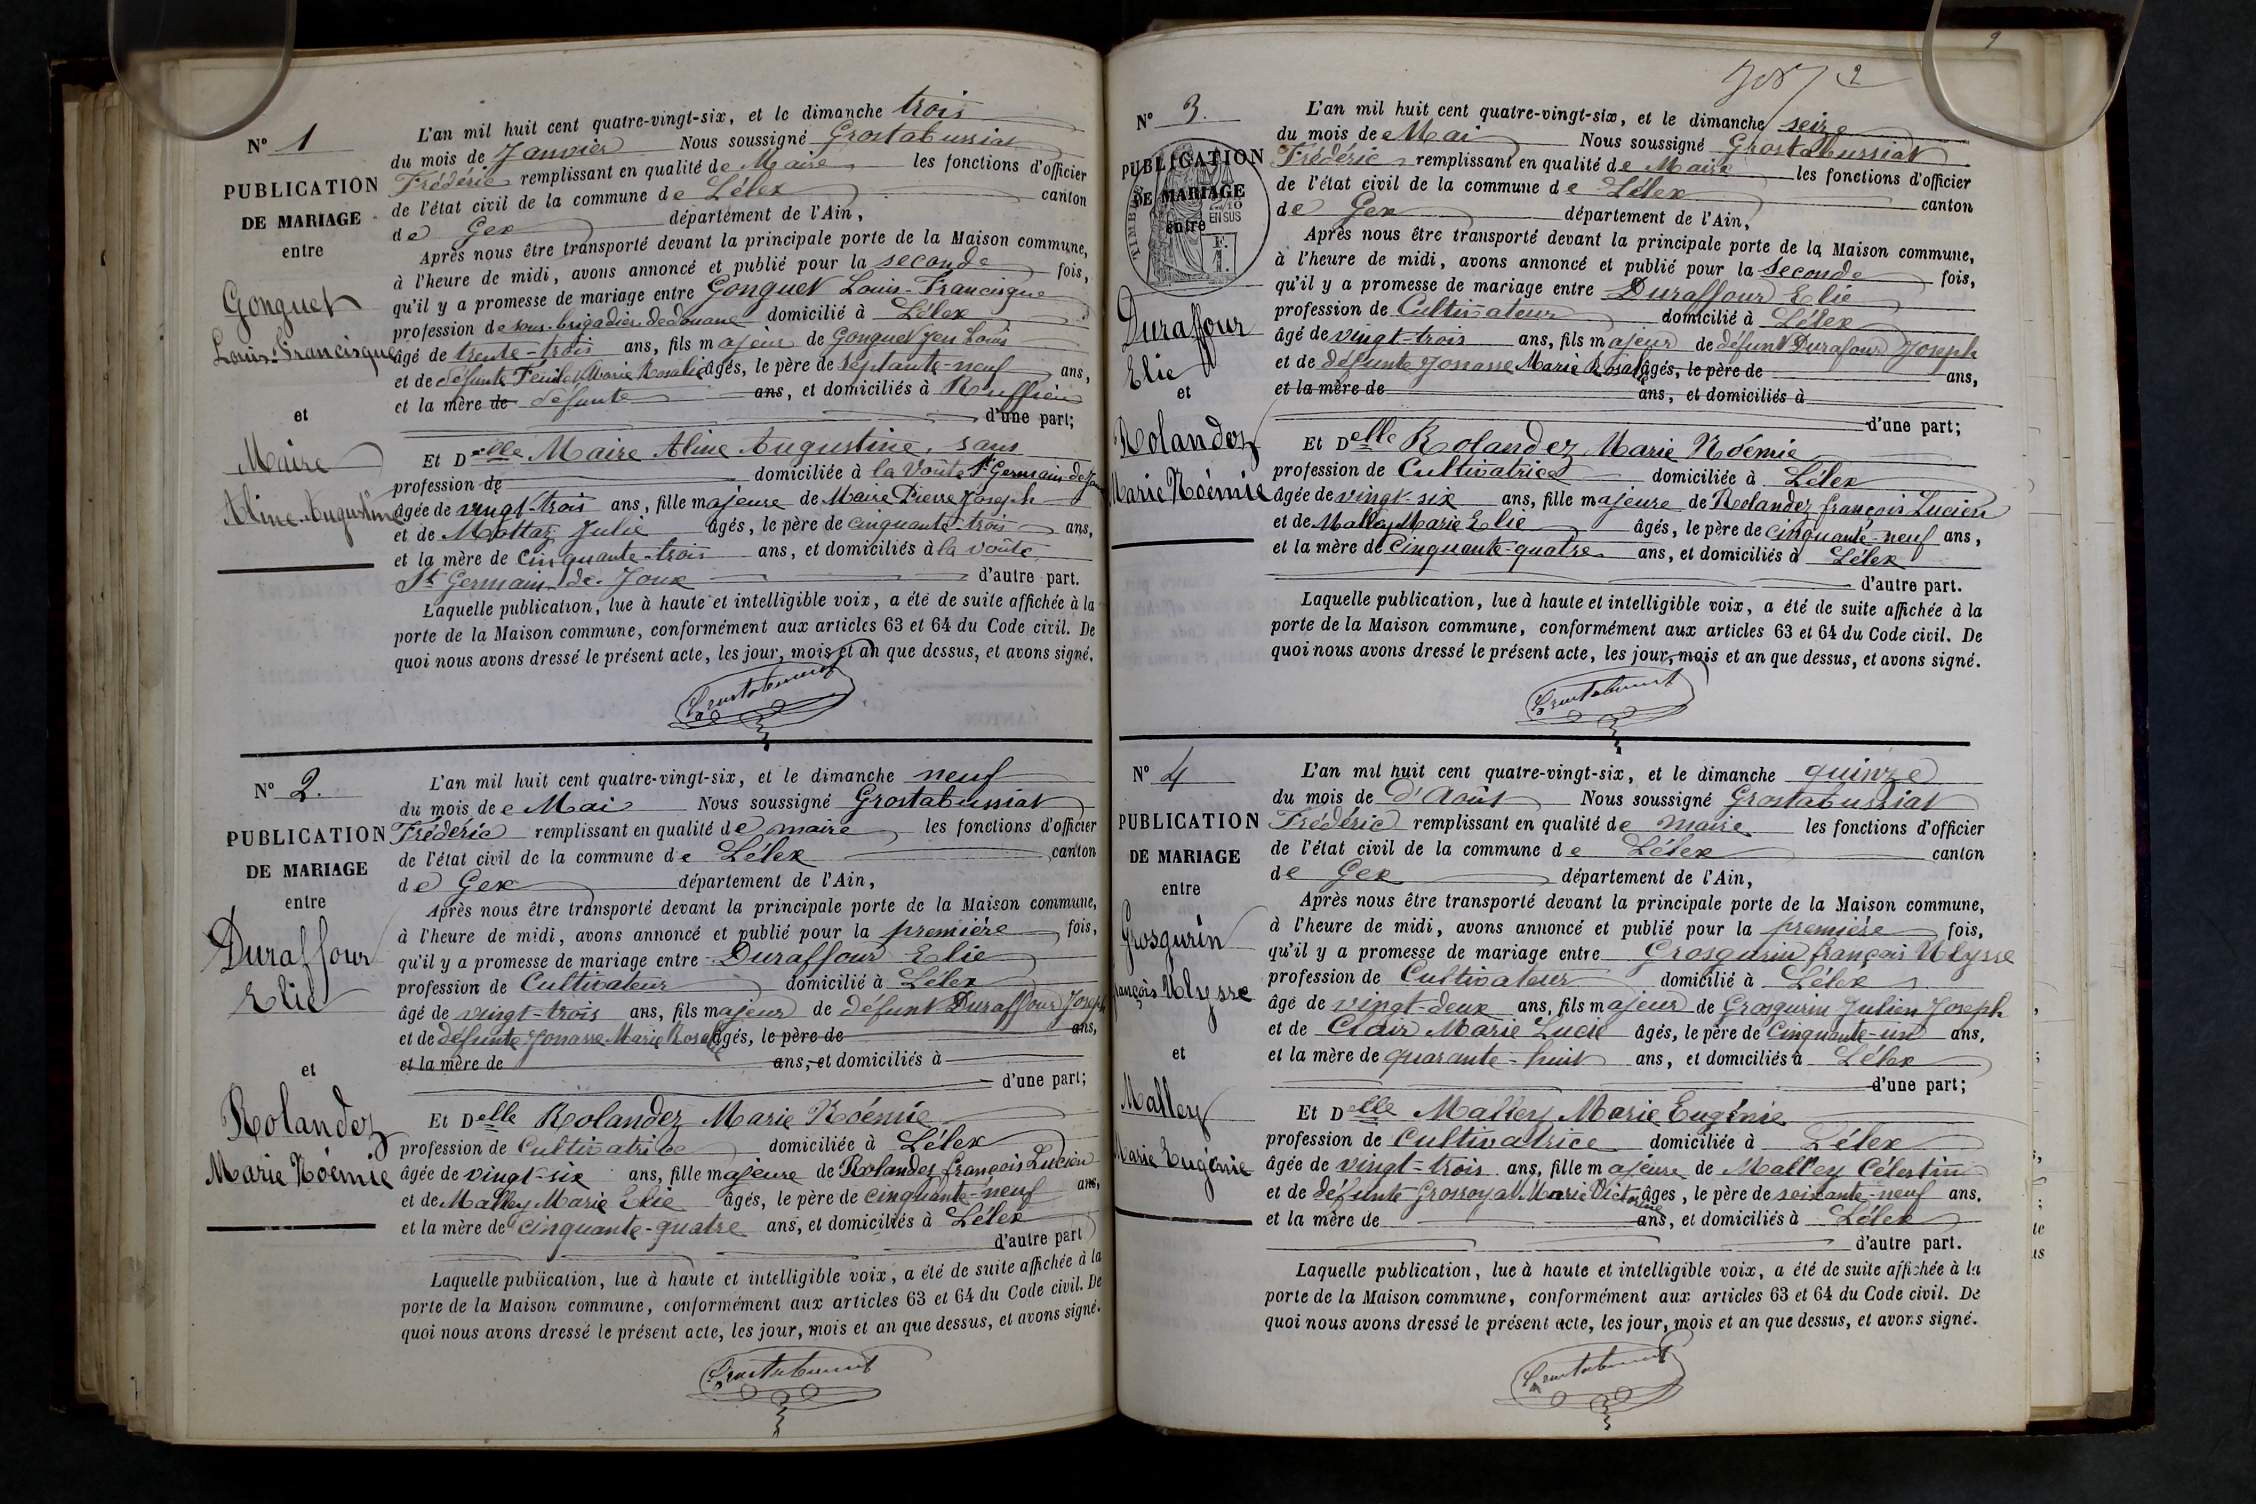 N° 1
PUBLICATION
DE MARIAGE
entre
Gonguet
Louis-Francisque
et
Maire
Aline Augustine
L'an mil huit cent quatre-vingt-six, et le dimanche trois
du mois de Janvier Nous soussigné Grostabussiat
Frédéric remplissant en qualité de Maire les fonctions d'officier
de l'état civil de la commune de Lélex canton
de Gex département de l'Ain,
Après nous être transporté devant la principale porte de la Maison commune,
à l'heure de midi, avons annoncé et publié pour la seconde fois,
qu'il y a promesse de mariage entre Gonguet Louis-Francisque
profession de sous-brigadier de douane domicilié à Lélex
âgé de trente-trois ans, fils majeur de Gonguet Louis
et de défunte Marie Rosalie âgés, le père de septante-neuf ans,
et la mère de défunte ans, et domiciliés à Ruffieu
d'une part;
Et Delle Maire Aline Augustine, sans
profession de domiciliée à la Voûte St Germain-de-Joux
âgée de vingt-trois ans, fille majeure de Maire Pierre Joseph
et de Mottaz Julie âgés, le père de cinquante-trois ans,
et la mère de cinquante-trois ans, et domiciliés à la Voûte
St Germain de Joux d'autre part.
Laquelle publication, lue à haute et intelligible voix, a été de suite affichée à la
porte de la Maison commune, conformément aux articles 63 et 64 du Code civil. De
quoi nous avons dressé le présent acte, les jour, mois et an que dessus, et avons signé.
N° 2.
PUBLICATION
DE MARIAGE
entre
Duraffour
Elie
et
Rolandez
Marie Noémie
L'an mil huit cent quatre-vingt-six, et le dimanche neuf
du mois de Mai Nous soussigné Grostabussiat
Frédéric remplissant en qualité de maire les fonctions d'officier
de l'état civil de la commune de Lélex canton
de Gex département de l'Ain,
Après nous être transporté devant la principale porte de la Maison commune,
à l'heure de midi, avons annoncé et publié pour la première fois,
qu'il y a promesse de mariage entre Duraffour Elie
profession de Cultivateur domicilié à Lélex
âgé de vingt-trois ans, fils majeur de défunt Duraffour Joseph
et de défunte Jonasse Marie Rosalie âgés, le père de ans,
et la mère de ans, et domiciliés à
d'une part;
Et Delle Rolandez Marie Noémie
profession de Cultivatrice domiciliée à Lélex
âgée de vingt-six ans, fille majeure de Rolandez françois Lucien
et de Malley Marie Elie âgés, le père de cinquante-neuf ans,
et la mère de cinquante-quatre ans, et domiciliés à Lélex
d'autre part
Laquelle publication, lue à haute et intelligible voix, a été de suite affichée à la
porte de la Maison commune, conformément aux articles 63 et 64 du Code civil. De
quoi nous avons dressé le présent acte, les jour, mois et an que dessus, et avons signé.
9
2
N° 3.
PUBLICATION
DE MARIAGE
entre
EN SUS
F.
1.
Duraffour
Elie
et
Rolandez
Marie Noémie
L'an mil huit cent quatre-vingt-six, et le dimanche seize
du mois de Mai Nous soussigné Grostabussiat
Frédéric remplissant en qualité de Maire les fonctions d'officier
de l'état civil de la commune de Lélex canton
de Gex département de l'Ain,
Après nous être transporté devant la principale porte de la Maison commune,
à l'heure de midi, avons annoncé et publié pour la Seconde fois,
qu'il y a promesse de mariage entre Duraffour Elie
profession de Cultivateur domicilié à Lélex
âgé de vingt-trois ans, fils majeur de défunt Durafour Joseph
et de défunte Jonasse Marie Rosalie âgés, le père de ans,
et la mère de ans, et domiciliés à
d'une part;
Et Delle Rolandez Marie Noémie
profession de Cultivatrice domiciliée à Lélex
âgée de vingt-six ans, fille majeure de Rolandez françois Lucien
et de Malley Marie Elie âgés, le père de cinquante-neuf ans,
et la mère de cinquante-quatre ans, et domiciliés à Lélex
d'autre part.
Laquelle publication, lue à haute et intelligible voix, a été de suite affichée à la
porte de la Maison commune, conformément aux articles 63 et 64 du Code civil. De
quoi nous avons dressé le présent acte, les jour, mois et an que dessus, et avons signé.
N° 4
PUBLICATION
DE MARIAGE
entre
Grosgurin
françois Ulysse
et
Malley
Marie Eugénie
L'an mil huit cent quatre-vingt-six, et le dimanche quinze
du mois de d'Août Nous soussigné Grostabussiat
Frédéric remplissant en qualité de maire les fonctions d'officier
de l'état civil de la commune de Lélex canton
de Gex département de l'Ain,
Après nous être transporté devant la principale porte de la Maison commune,
à l'heure de midi, avons annoncé et publié pour la première fois,
qu'il y a promesse de mariage entre Grosgurin françois Ulysse
profession de Cultivateur domicilié à Lélex
âgé de vingt-deux ans, fils majeur de Grosgurin Julien Joseph
et de Clair Marie Lucie âgés, le père de Cinquante-un ans,
et la mère de quarante-huit ans, et domiciliés à Lélex
d'une part;
Et Delle Malley Marie Eugénie
profession de Cultivatrice domiciliée à Lélex
âgée de vingt-trois ans, fille majeure de Malley Célestin
et de défunte Grosroyat Marie Victorine âgés, le père de soixante-neuf ans,
et la mère de ans, et domiciliés à Lélex
d'autre part.
Laquelle publication, lue à haute et intelligible voix, a été de suite affichée à la
porte de la Maison commune, conformément aux articles 63 et 64 du Code civil. De
quoi nous avons dressé le présent acte, les jour, mois et an que dessus, et avons signé.